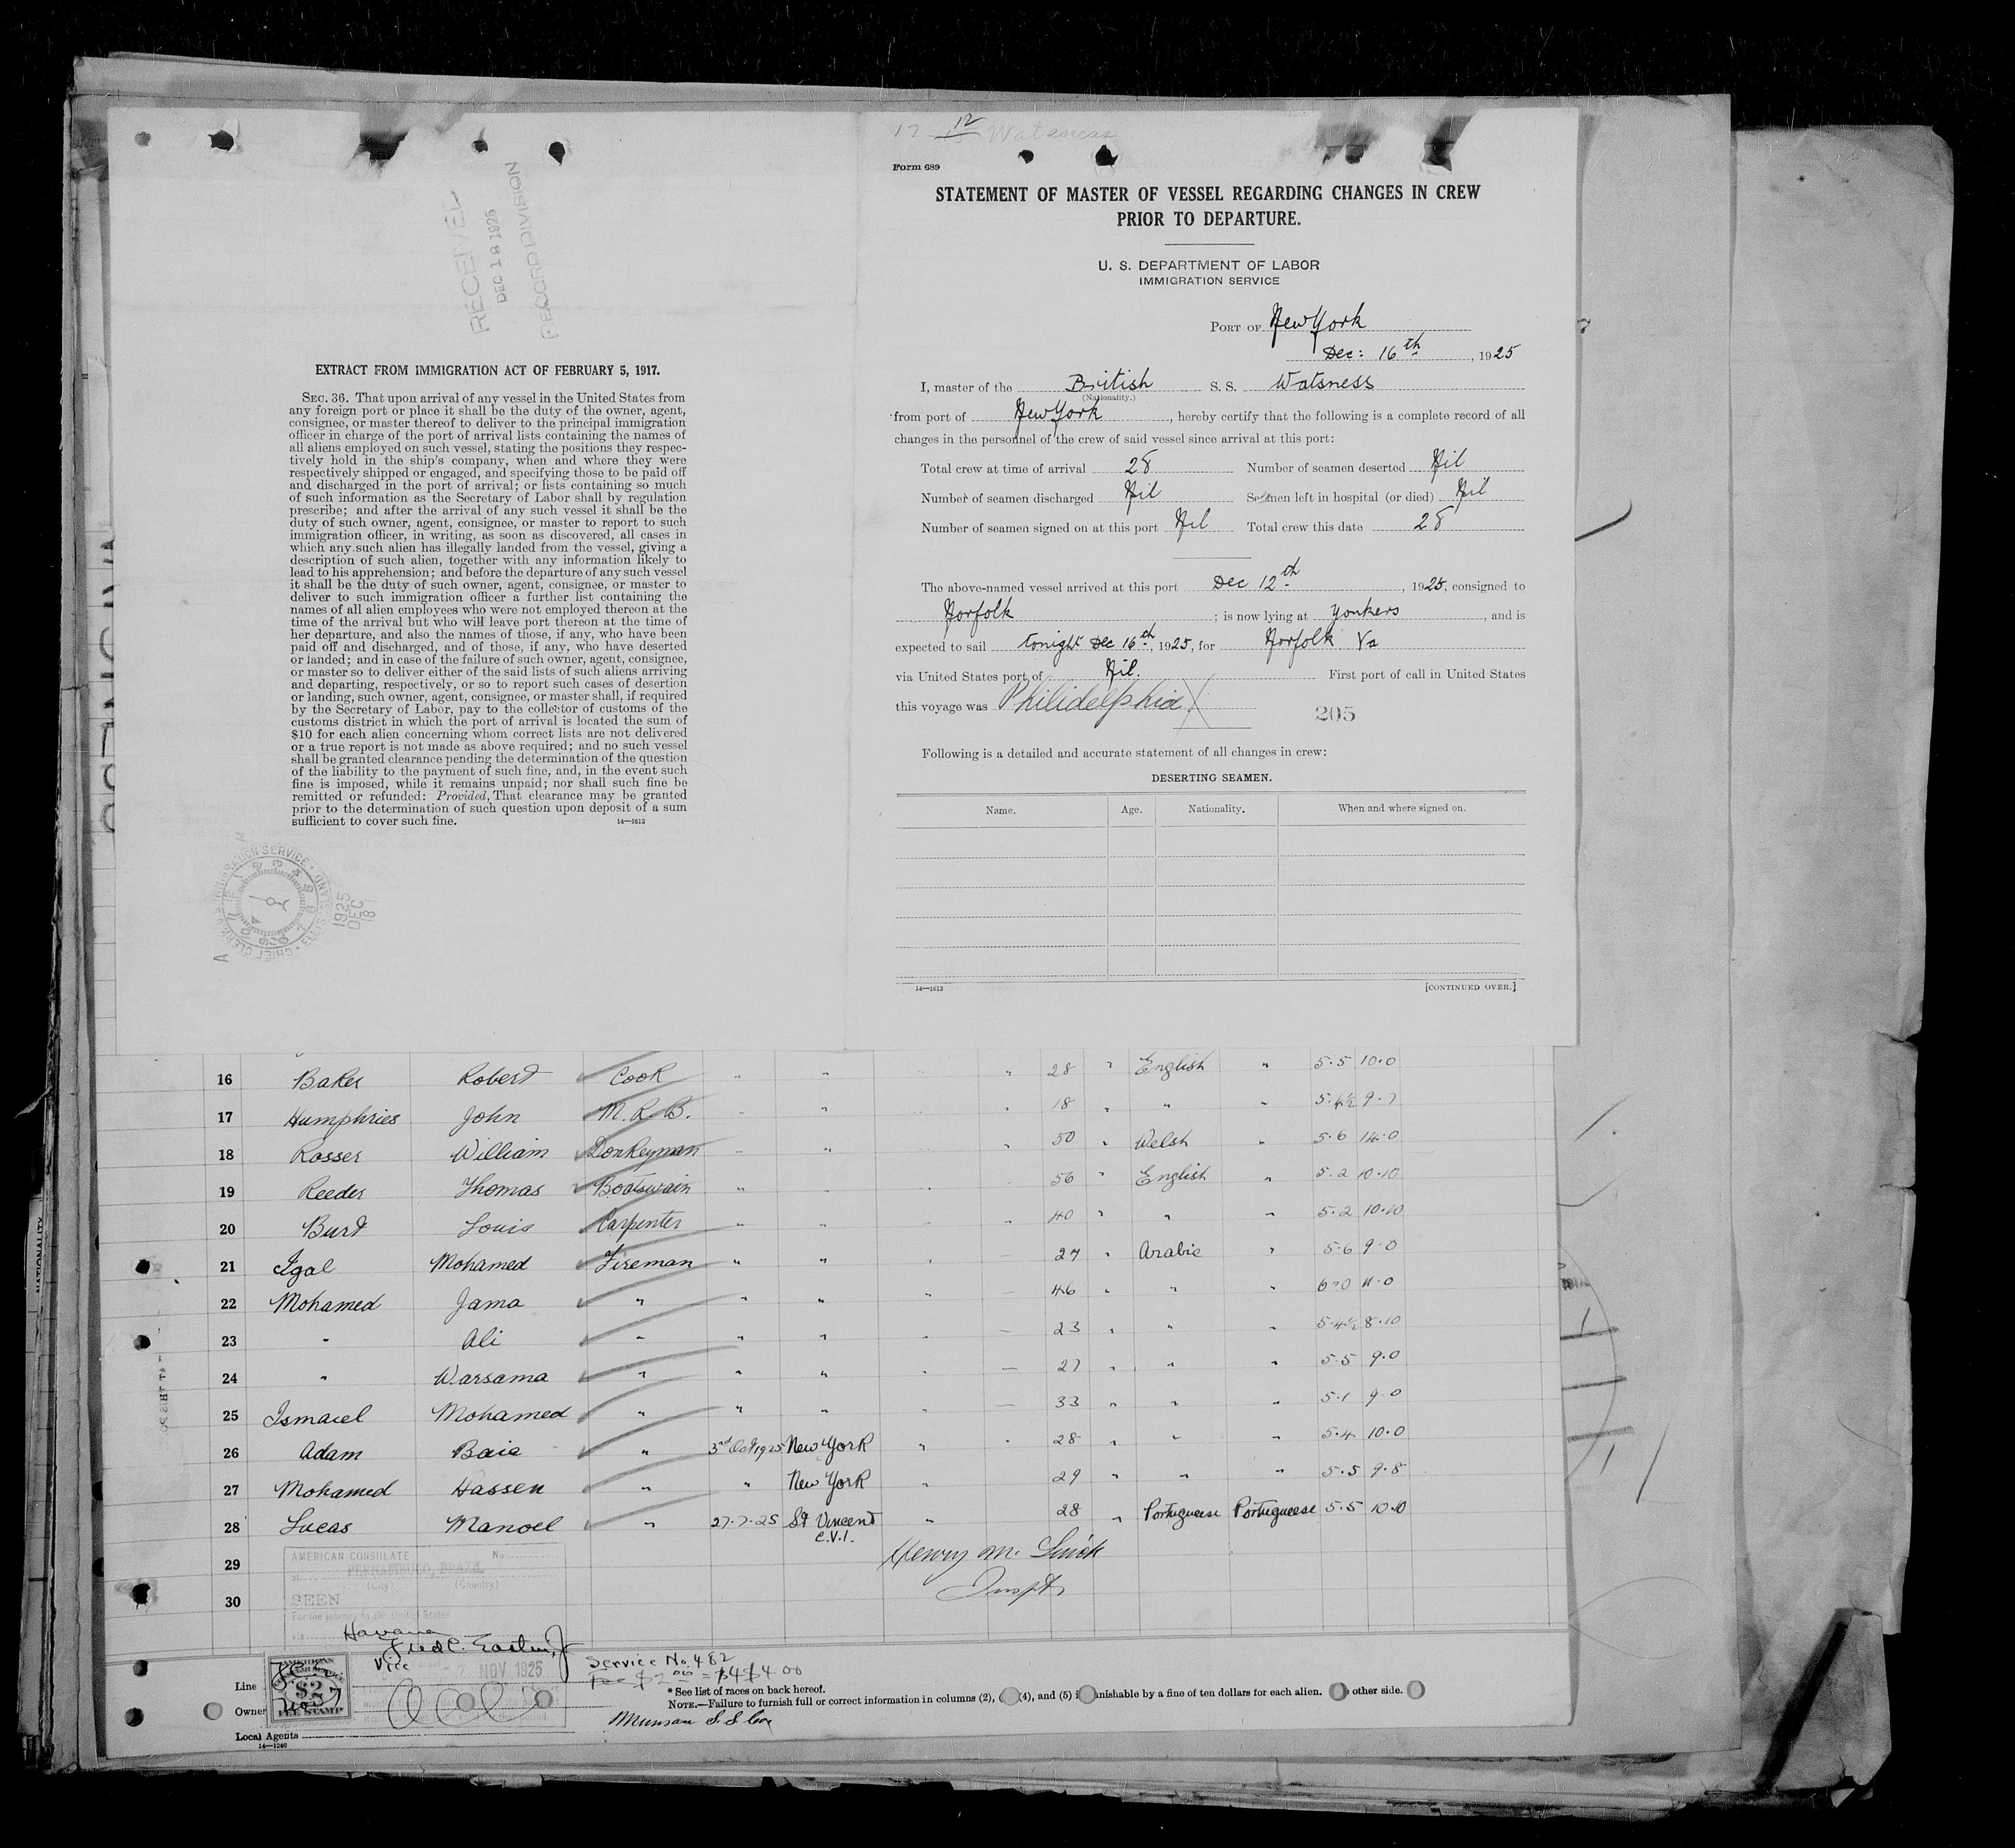 RECEIVED
DEC 18 1925
RECORD DIVISION
EXTRACT FROM IMMIGRATION ACT OF FEBRUARY 5, 1917.
SEC. 36. That upon arrival of any vessel in the United States from
any foreign port or place it shall be the duty of the owner, agent,
consignee, or master thereof to deliver to the principal immigration
officer in charge of the port of arrival lists containing the names of
all aliens employed on such vessel, stating the positions they respec-
tively hold in the ship's company, when and where they were
respectively shipped or engaged, and specifying those to be paid off
and discharged in the port of arrival; or lists containing so much
of such information as the Secretary of Labor shall by regulation
prescribe; and after the arrival of any such vessel it shall be the
duty of such owner, agent, consignee, or master to report to such
immigration officer, in writing, as soon as discovered, all cases in
which any such alien has illegally landed from the vessel, giving a
description of such alien, together with any information likely to
lead to his apprehension; and before the departure of any such vessel
it shall be the duty of such owner, agent, consignee, or master to
deliver to such immigration officer a further list containing the
names of all alien employees who were not employed thereon at the
time of the arrival but who will leave port thereon at the time of
her departure, and also the names of those, if any, who have been
paid off and discharged, and of those, if any, who have deserted
or landed; and in case of the failure of such owner, agent, consignee,
or master so to deliver either of the said lists of such aliens arriving
and departing, respectively, or so to report such cases of desertion
or landing, such owner, agent, consignee, or master shall, if required
by the Secretary of Labor, pay to the collector of customs of the
customs district in which the port of arrival is located the sum of
$10 for each alien concerning whom correct lists are not delivered
or a true report is not made as above required; and no such vessel
shall be granted clearance pending the determination of the question
of the liability to the payment of such fine, and, in the event such
fine is imposed, while it remains unpaid; nor shall such fine be
remitted or refunded: Provided, That clearance may be granted
prior to the determination of such question upon deposit of a sum
sufficient to cover such fine.
14—1613
1925 DEC 18
12 Watsness
Form 689
STATEMENT OF MASTER OF VESSEL REGARDING CHANGES IN CREW
PRIOR TO DEPARTURE.
U. S. DEPARTMENT OF LABOR
IMMIGRATION SERVICE
PORT OF New York
Dec: 16th, 1925
I, master of the British S. S. Watsness
(Nationality.)
from port of New York, hereby certify that the following is a complete record of all
changes in the personnel of the crew of said vessel since arrival at this port:
Total crew at time of arrival 28 Number of seamen deserted Nil
Number of seamen discharged Nil Seamen left in hospital (or died) Nil
Number of seamen signed on at this port Nil Total crew this date 28
The above-named vessel arrived at this port Dec 12th, 1925, consigned to
Norfolk; is now lying at Yonkers, and is
expected to sail tonight Dec 16th, 1925, for Norfolk Va
via United States port of Nil. First port of call in United States
this voyage was Philidelphia X
205
Following is a detailed and accurate statement of all changes in crew:
DESERTING SEAMEN.
Name. Age. Nationality. When and where signed on.
14—1613 [CONTINUED OVER.]
16 Baker Robert Cook " " " 28 " English " 5.5 10.0
17 Humphries John M. R. B. " " " 18 " " " 5.4½ 9.7
18 Rosser William Donkeyman " " " 50 " Welsh " 5.6 14.0
19 Reeder Thomas Boatswain " " " 56 " English " 5.2 10.10
20 Burt Louis Carpenter " " " " 40 " " " 5.2 10.10
21 Igal Mohamed Fireman " " " — 27 " Arabic " 5.6 9.0
22 Mohamed Jama " " " " — 46 " " " 6.0 11.0
23 " Ali " " " " — 23 " " " 5.4½ 8.10
24 " Warsama " " " " — 27 " " " 5.5 9.0
25 Ismaiel Mohamed " " " " — 33 " " " 5.1 9.0
26 Adam Baie " 3rd Oct 1925 New York " " 28 " " " 5.4 10.0
27 Mohamed Hassen " " New York " 29 " " " 5.5 9.8
28 Lucas Manoel " 27.7.25 St Vincent C.V.I. " 28 " Portuguese Portuguese 5.5 10.10
29 Henry M.
30 Inspt.
AMERICAN CONSULATE No
at PERNAMBUCO, BRAZIL
(City) (Country)
SEEN
For the journey to the United States
via Havana
Vice
7 NOV 1925
Service No. 482
AMERICAN
$2
FEE STAMP
Line
* See list of races on back hereof.
NOTE.—Failure to furnish full or correct information in columns (2), (4), and (5) is punishable by a fine of ten dollars for each alien. other side.
Owner
Munson S. S. Co
Local Agents
14—1240